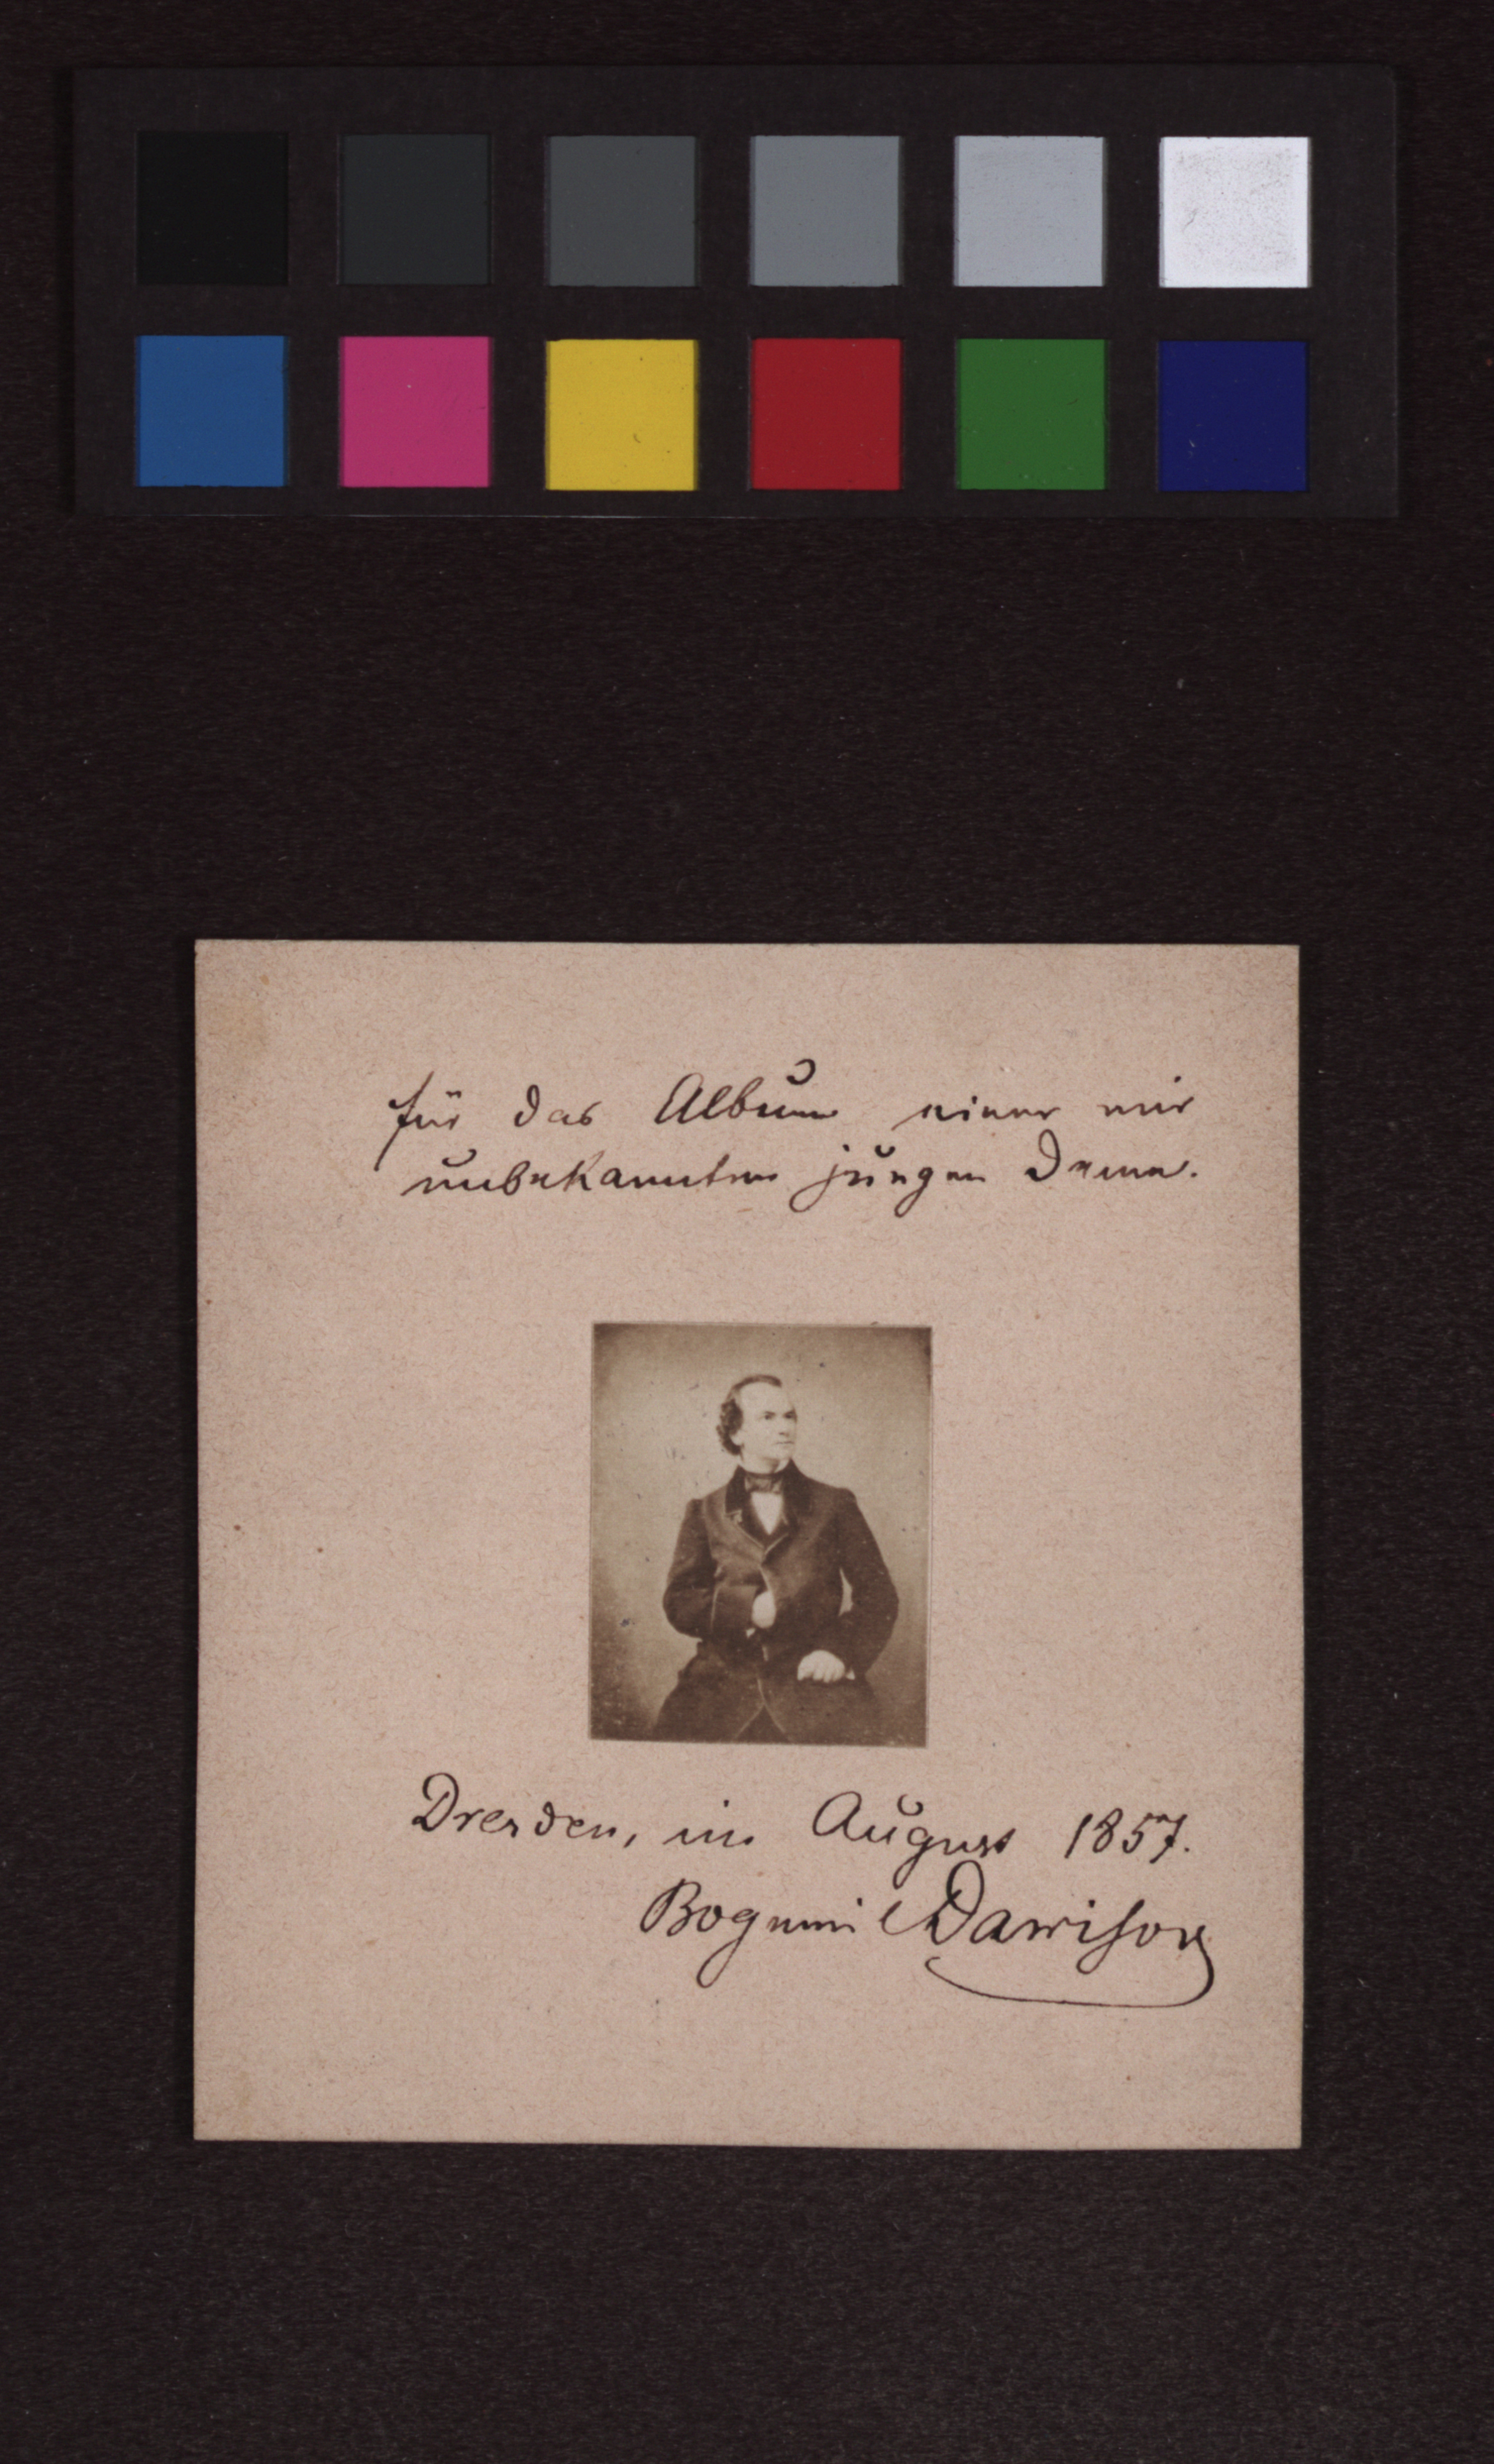 für das Album einer mir
unbekannten jungen Dame.
Dresden, im August 1857.
Bogumil Dawison